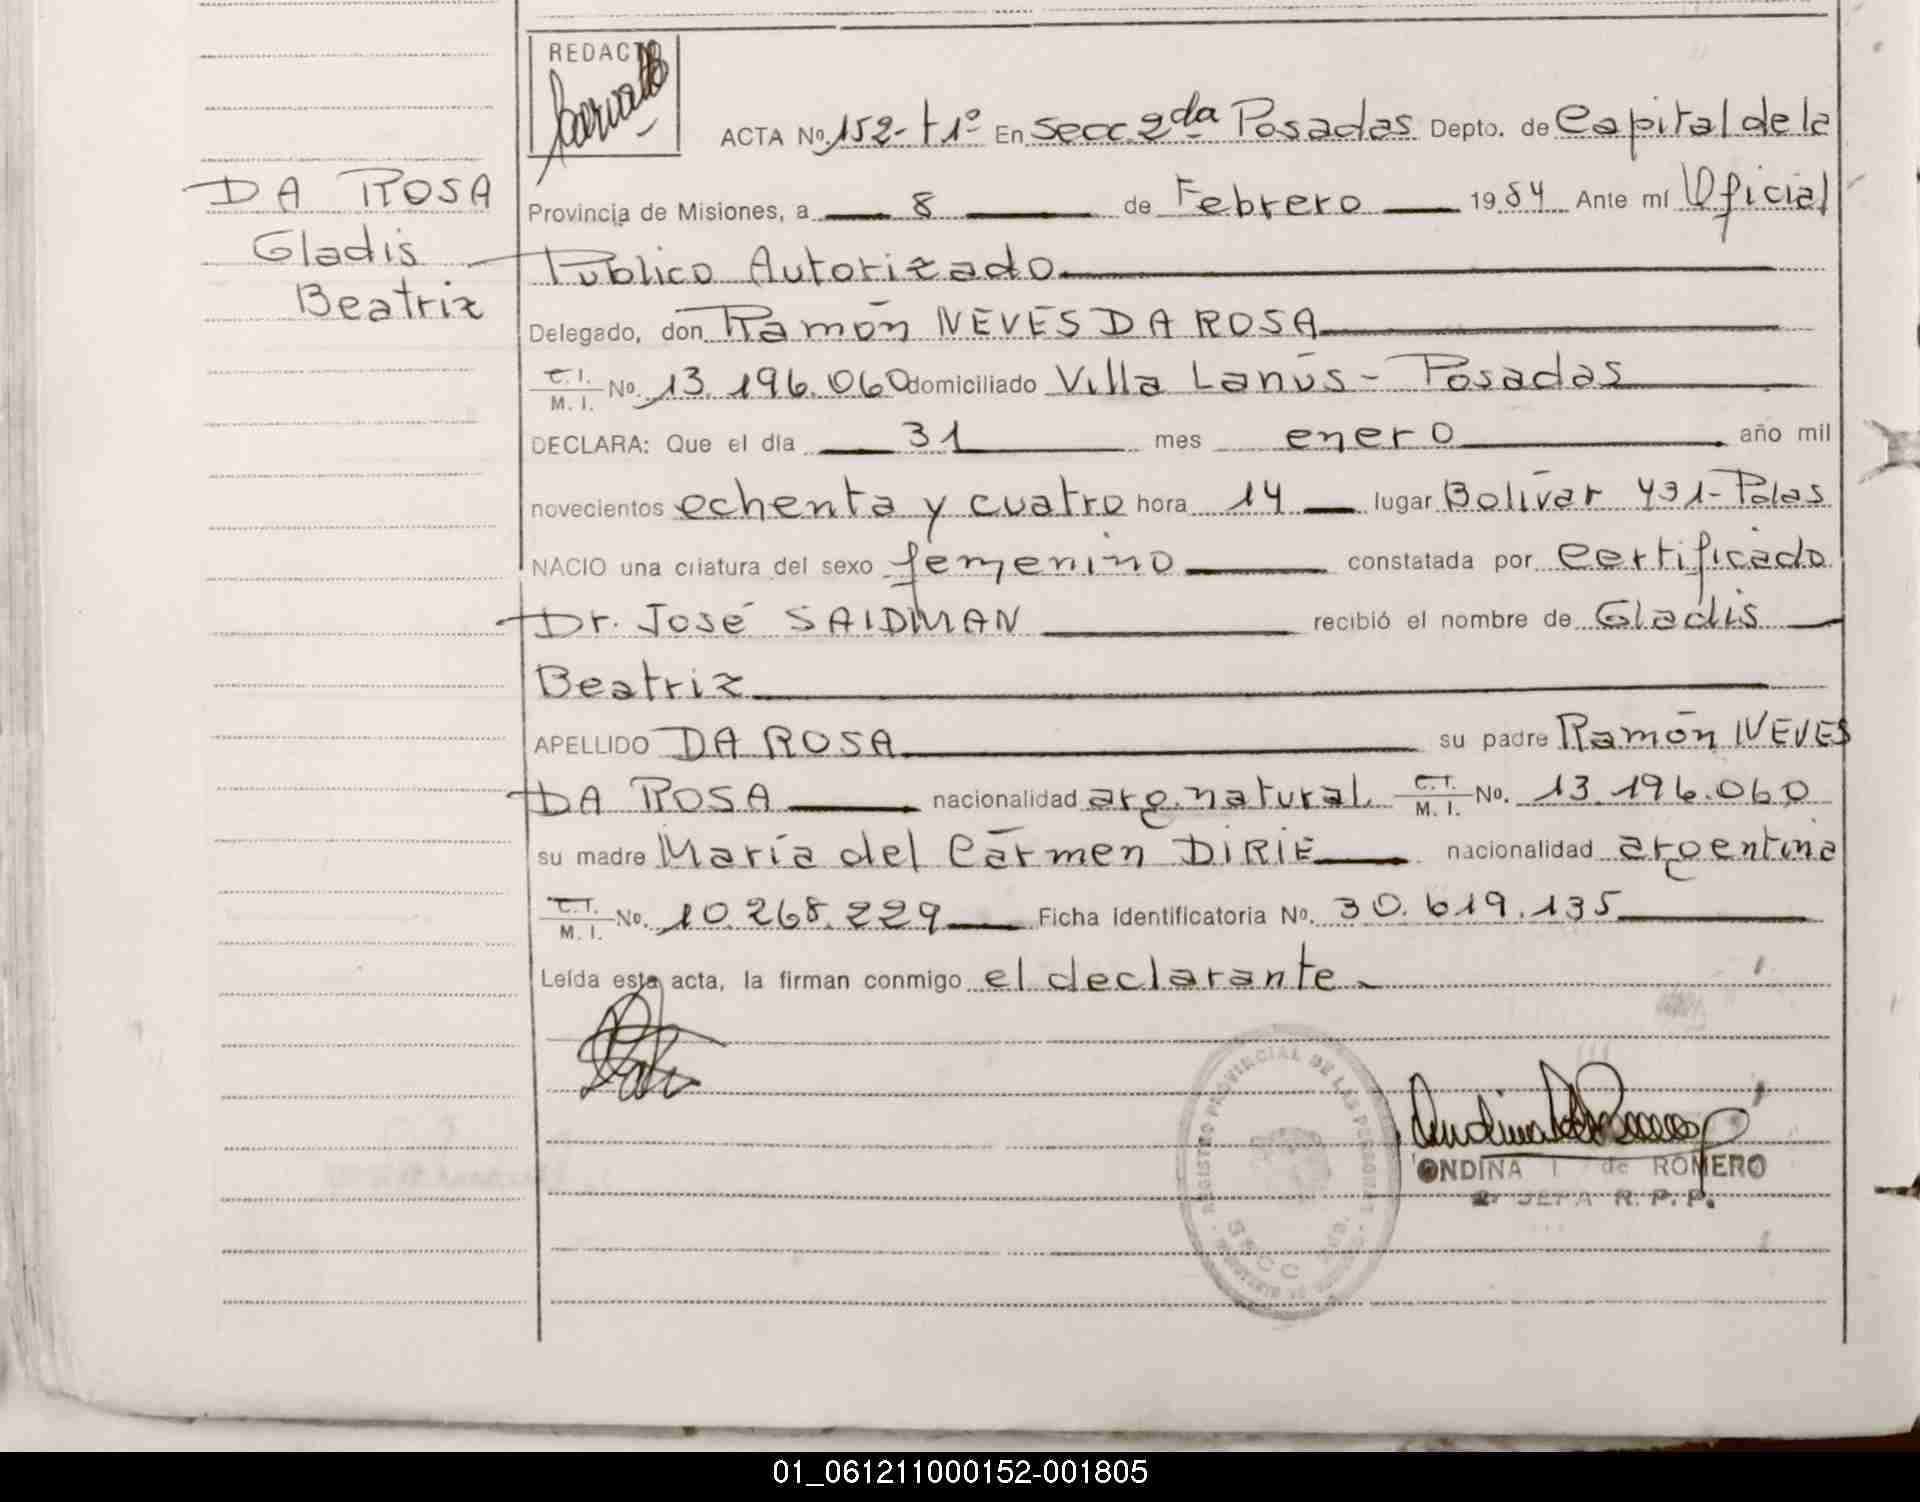 REDACTO
ACTA Nº 152- t1º En Secc. 2da Posadas Depto. de Capital de la
DA ROSA
Provincia de Misiones, a 8 de Febrero 1984 Ante mí Oficial
Gladis
Público Autorizado
Beatriz
Delegado, don Ramón NEVES DA ROSA
C.I. M.I. No. 13.196.060 domiciliado Villa Lanús - Posadas
DECLARA: Que el día 31 mes enero año mil
novecientos ochenta y cuatro hora 14 lugar Bolívar 431- Pdas
NACIO una criatura del sexo femenino constatada por certificado
Dr. José SAIDMAN recibió el nombre de Gladis
Beatriz
APELLIDO DA ROSA su padre Ramón NEVES
DA ROSA nacionalidad arg. natural C.I. M.I. No. 13.196.060
su madre María del Cármen DIRIE nacionalidad argentina
C.I. M.I. No. 10.268.229 Ficha identificatoria No. 30.619.135
Leída esta acta, la firman conmigo el declarante
REGISTRO PROVINCIAL DE LAS PERSONAS
SECC
ONDINA de ROMERO
JEFA R.P.P.
01_061211000152-001805